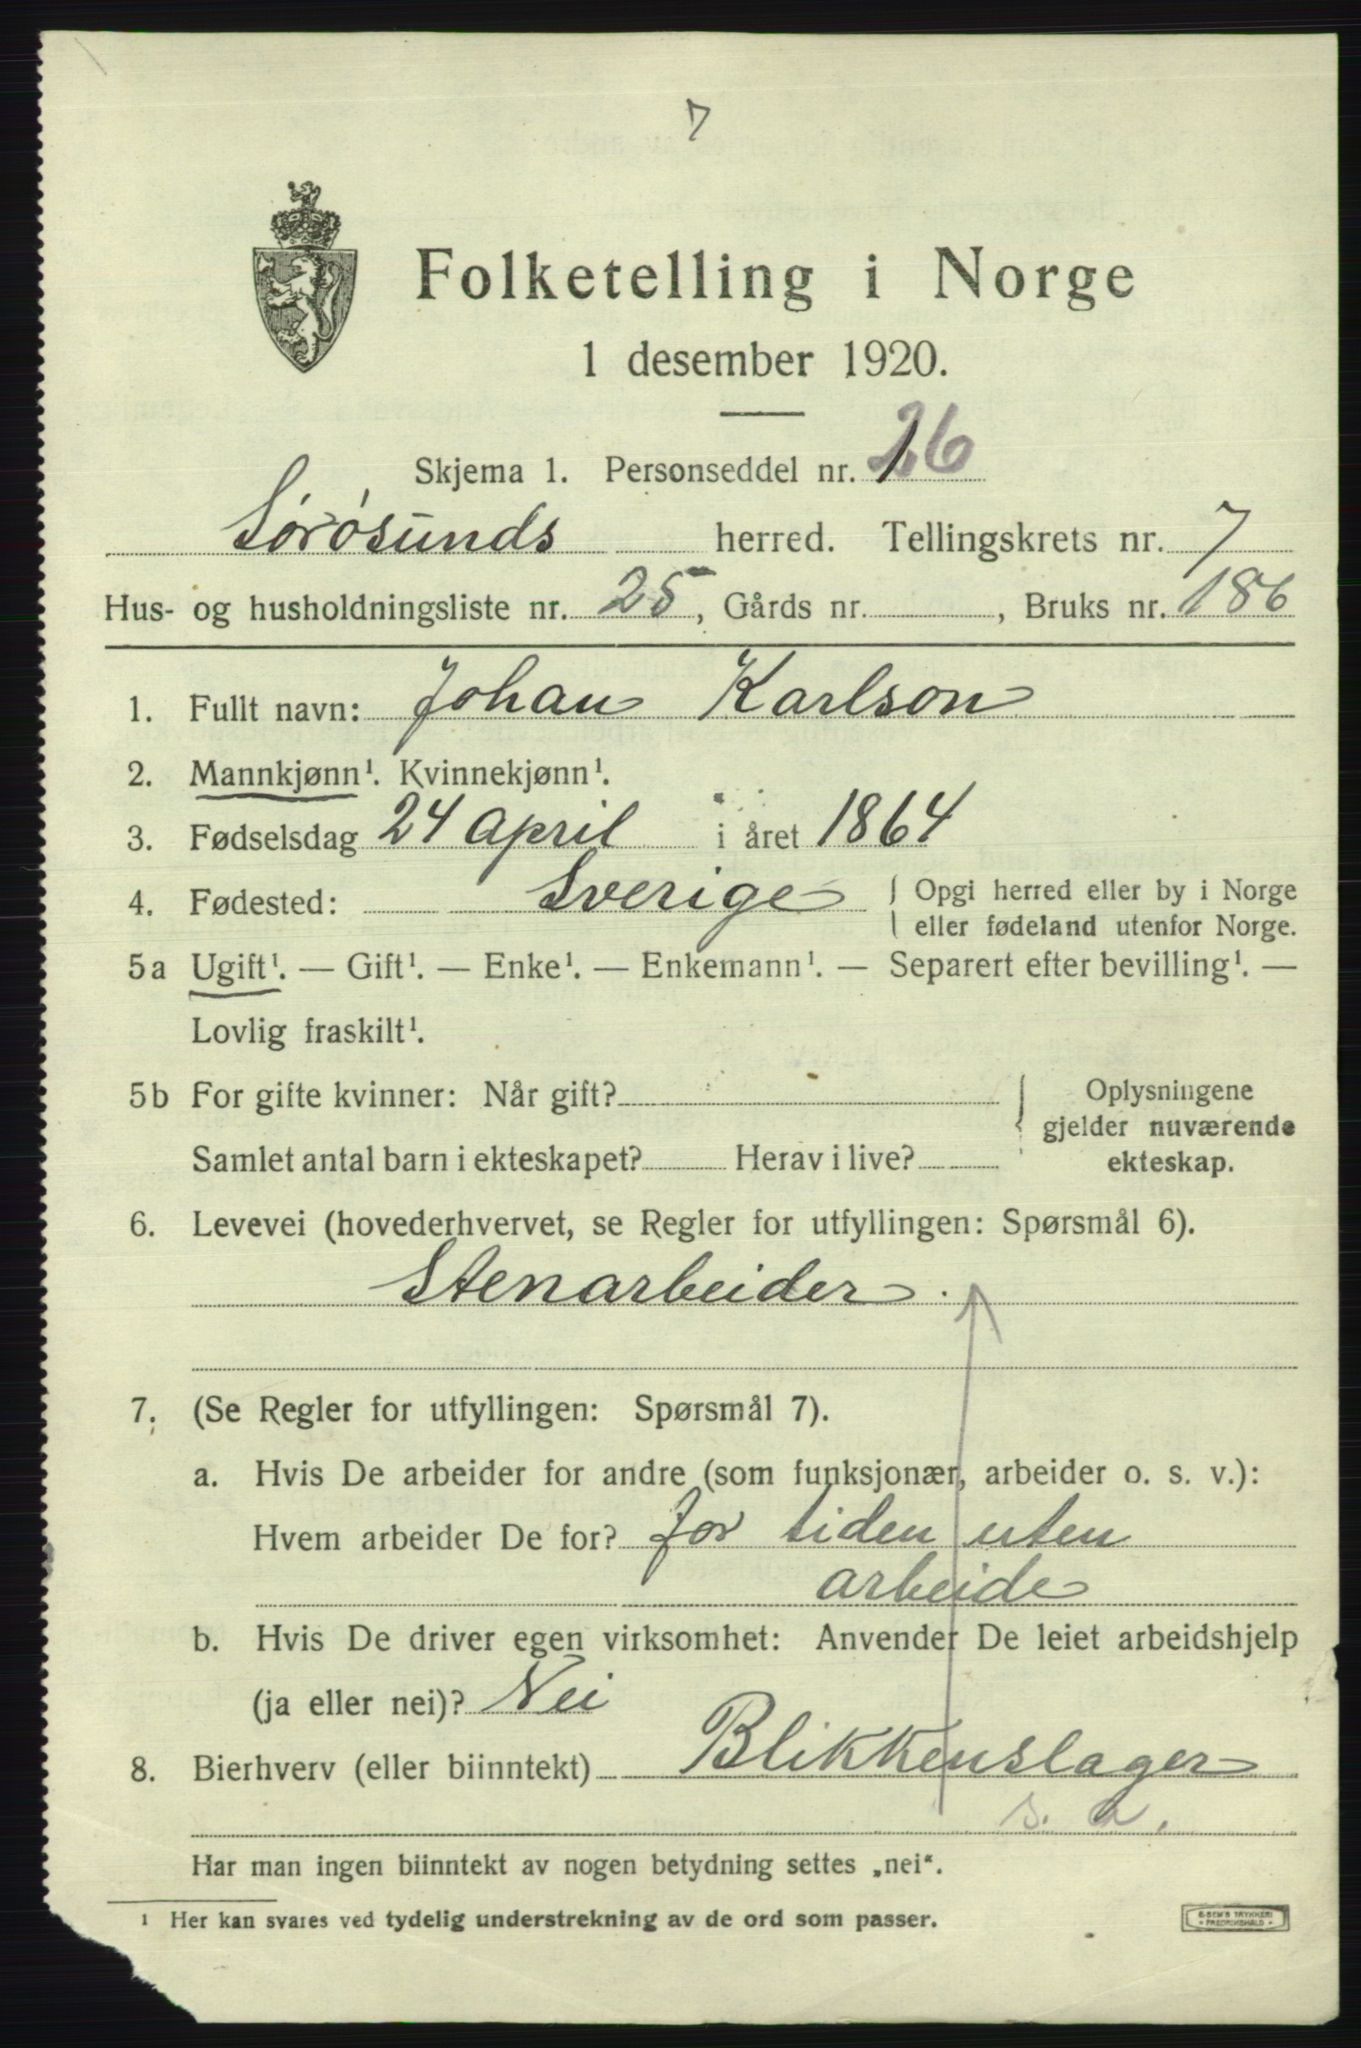 7
Folketelling i Norge
1 desember 1920.
Skjema 1. Personseddel nr. 26
Sørøsunds herred. Tellingskrets nr. 7
Hus- og husholdningsliste nr. 25, Gårds nr. , Bruks nr. 186
1. Fullt navn: Johan Karlson
2. Mannkjønn¹. Kvinnekjønn¹.
3. Fødselsdag 24 April i året 1864
4. Fødested: Sverige { Opgi herred eller by i Norge
eller fødeland utenfor Norge.
5a Ugift¹. — Gift¹. — Enke¹. — Enkemann¹. — Separert efter bevilling¹. —
Lovlig fraskilt¹.
5b For gifte kvinner: Når gift? } Oplysningene
gjelder nuværende
Samlet antal barn i ekteskapet? Herav i live? ekteskap.
6. Levevei (hovederhvervet, se Regler for utfyllingen: Spørsmål 6).
Stenarbeider.
7. (Se Regler for utfyllingen: Spørsmål 7).
a. Hvis De arbeider for andre (som funksjonær, arbeider o. s. v.):
Hvem arbeider De for? for tiden uten
arbeide
b. Hvis De driver egen virksomhet: Anvender De leiet arbeidshjelp
(ja eller nei)? Nei
8. Bierhverv (eller biinntekt) Blikkenslager
s. a.
Har man ingen biinntekt av nogen betydning settes „nei“.
¹ Her kan svares ved tydelig understrekning av de ord som passer.
E. SEM'S TRYKKERI
FREDRIKSHALD